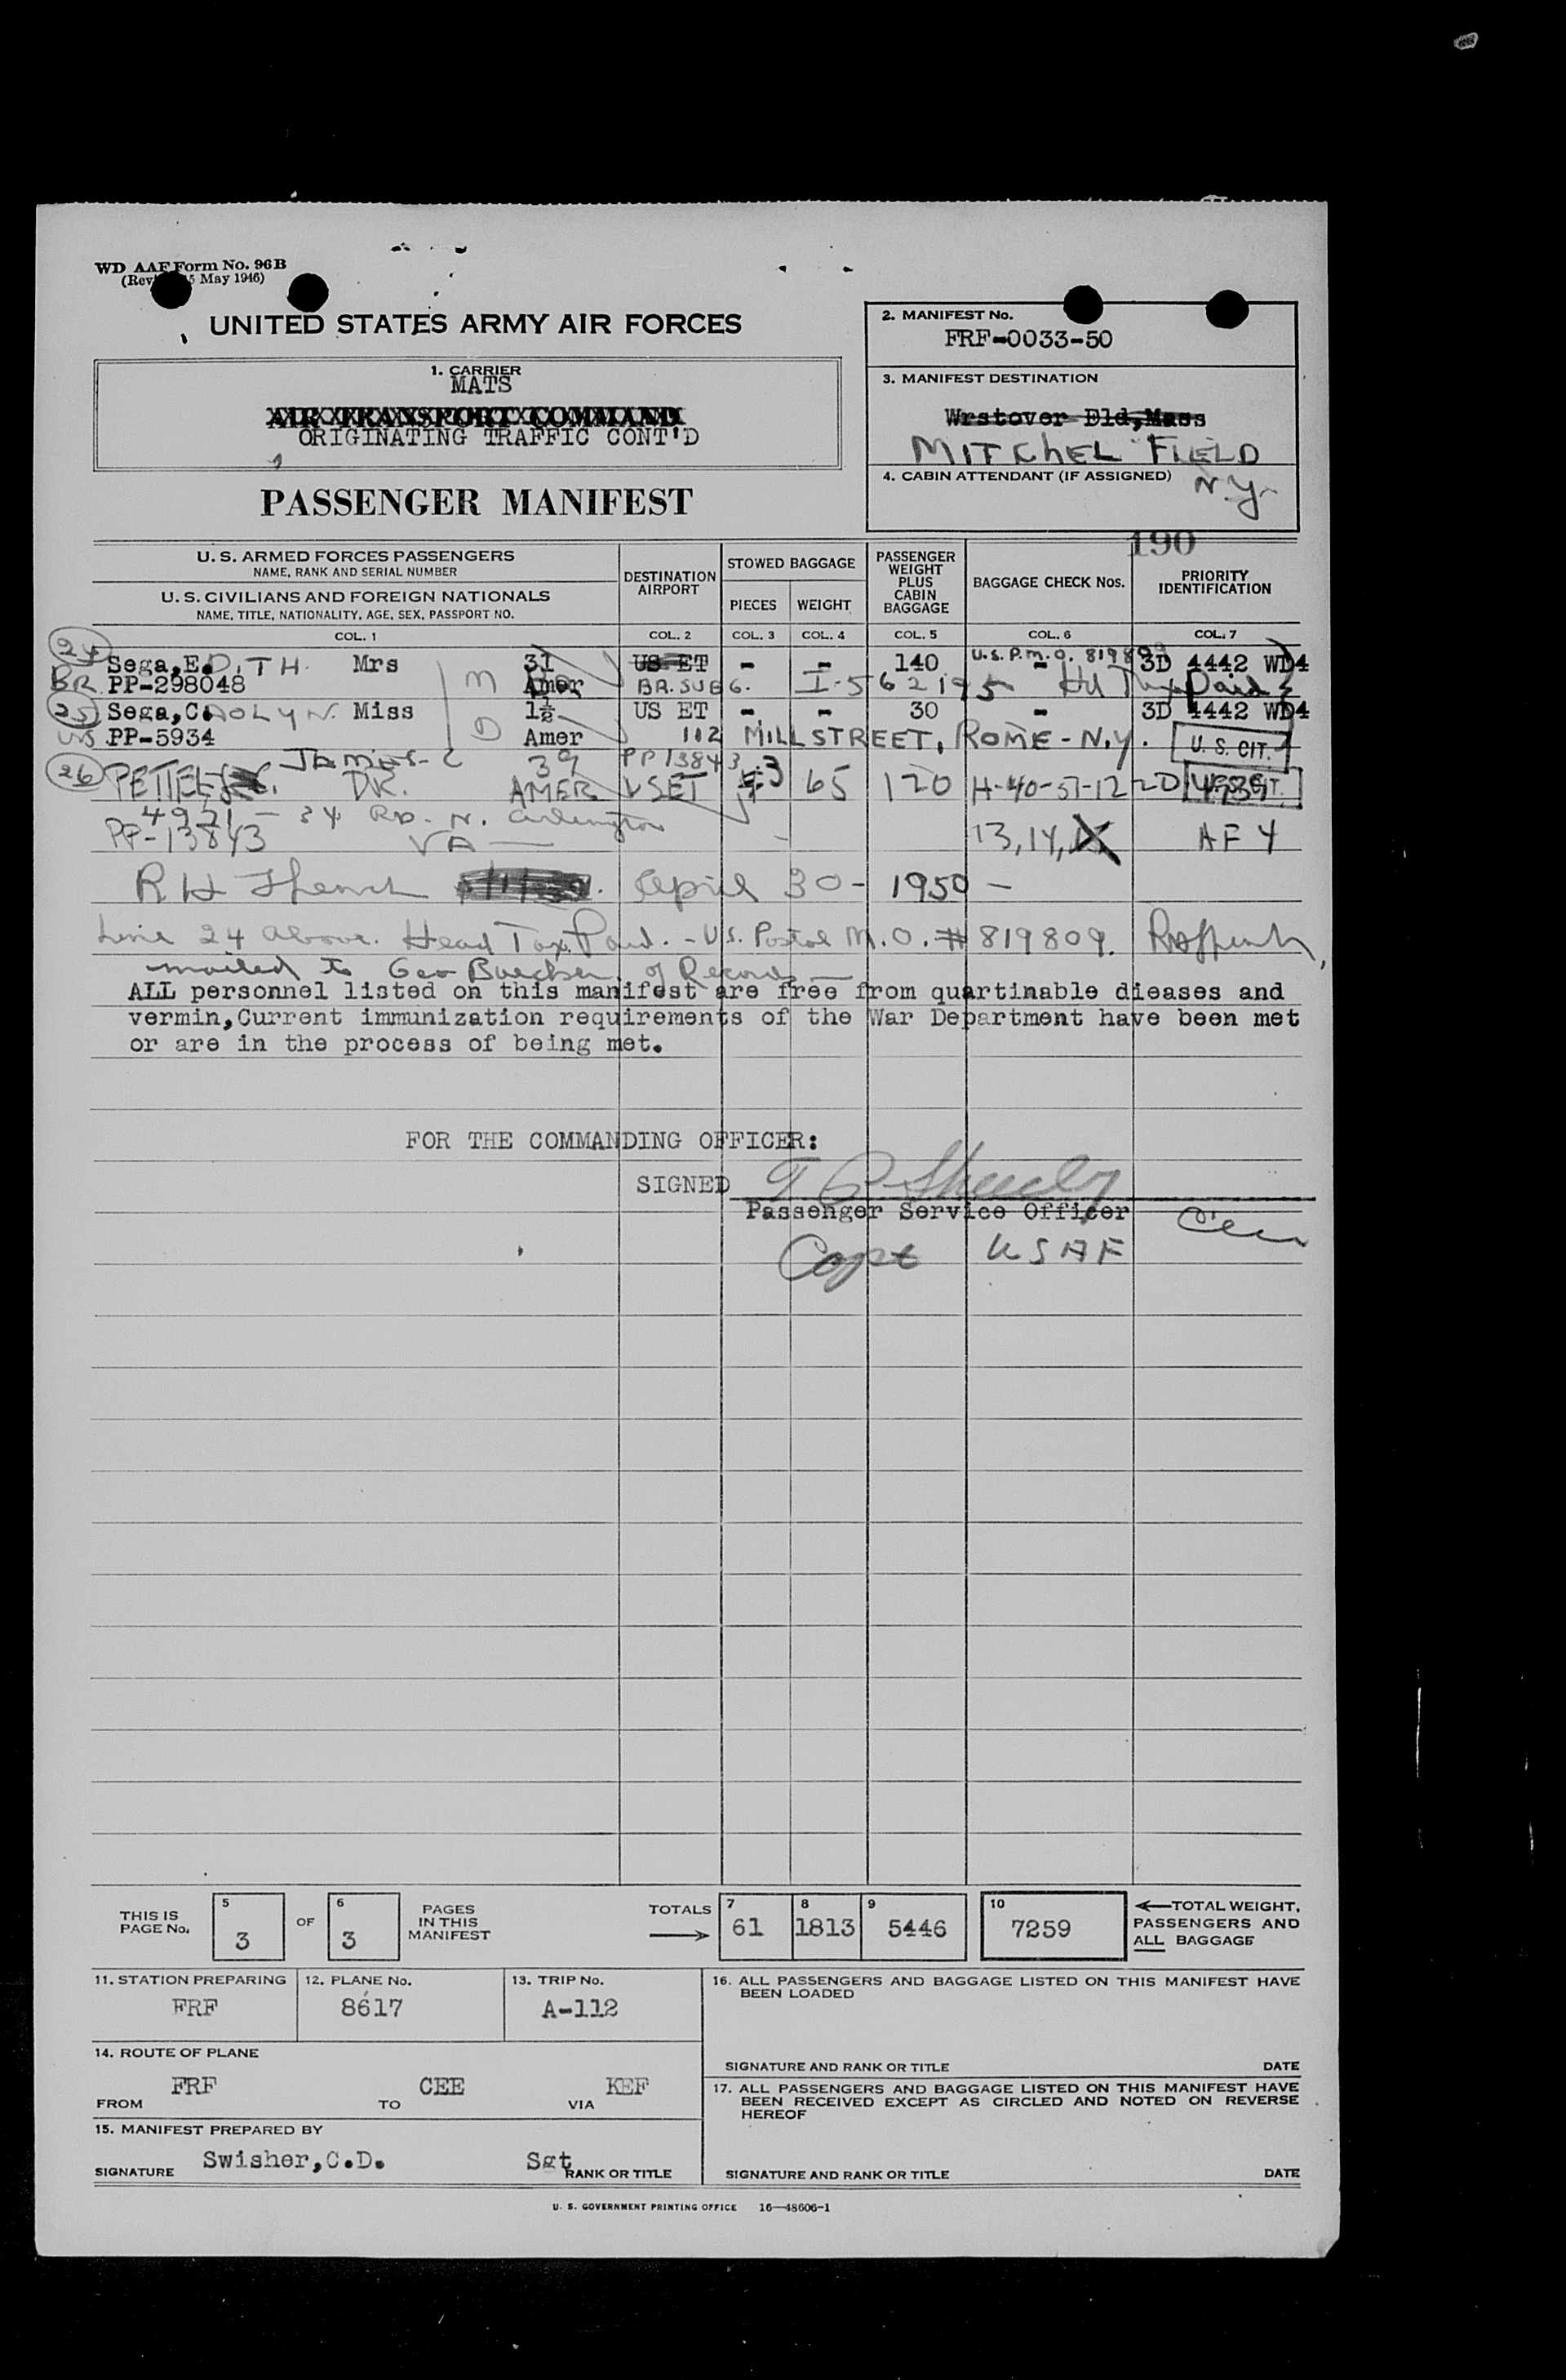 WD AAF Form No. 96B
(Rev. 15 May 1946)
UNITED STATES ARMY AIR FORCES
1. CARRIER
MATS
AIR TRANSPORT COMMAND
ORIGINATING TRAFFIC CONT'D
PASSENGER MANIFEST
2. MANIFEST No.
FRF-0033-50
3. MANIFEST DESTINATION
Wrstover Fld,Mass
MITCHEL FIELD
N.Y.
4. CABIN ATTENDANT (IF ASSIGNED)
190
U. S. ARMED FORCES PASSENGERS
NAME, RANK AND SERIAL NUMBER
U. S. CIVILIANS AND FOREIGN NATIONALS
NAME, TITLE, NATIONALITY, AGE, SEX, PASSPORT NO.
DESTINATION AIRPORT
STOWED BAGGAGE
PIECES WEIGHT
PASSENGER WEIGHT PLUS CABIN BAGGAGE
BAGGAGE CHECK Nos.
PRIORITY IDENTIFICATION
COL. 1 COL. 2 COL. 3 COL. 4 COL. 5 COL. 6 COL. 7
24 Sega,E.DITH Mrs 31 US ET - - 140 U.S.P.M.O. 819809 - 3D 4442 WD4
BR PP-298048 M Amer BR. SUBG. I-562195 Hd Tax Paid
25 Sega,C.AOLYN. Miss 1½ US ET - - 30 - 3D 4442 WD4
US PP-5934 D Amer 112 MILL STREET, ROME - N.Y. U. S. CIT.
James C PP13843
26 DR. 39 AMER USET 3 65 120 H-40-57-12 2D 4939 U. S. CIT.
4921 - 34 RD. N. Arlington
PP-13843 VA — 13,14, AF 4
R H April 30 - 1950 —
Line 24 above. Head Tax Paid. - U.S. Postal M.O. # 819809.
mailed to Geo of Records —
ALL personnel listed on this manifest are free from quartinable dieases and
vermin,Current immunization requirements of the War Department have been met
or are in the process of being met.
FOR THE COMMANDING OFFICER:
SIGNED
Passenger Service Officer
Capt USAF
THIS IS PAGE No. 5 3 OF 6 3 PAGES IN THIS MANIFEST
TOTALS 7 61 8 1813 9 5446 10 7259
TOTAL WEIGHT, PASSENGERS AND ALL BAGGAGE
11. STATION PREPARING
FRF
12. PLANE No.
8617
13. TRIP No.
A-112
14. ROUTE OF PLANE
FROM FRF TO CEE VIA KEF
15. MANIFEST PREPARED BY
SIGNATURE Swisher,C.D. Sgt RANK OR TITLE
16. ALL PASSENGERS AND BAGGAGE LISTED ON THIS MANIFEST HAVE
BEEN LOADED
SIGNATURE AND RANK OR TITLE DATE
17. ALL PASSENGERS AND BAGGAGE LISTED ON THIS MANIFEST HAVE
BEEN RECEIVED EXCEPT AS CIRCLED AND NOTED ON REVERSE
HEREOF
SIGNATURE AND RANK OR TITLE DATE
U. S. GOVERNMENT PRINTING OFFICE 16—48606-1